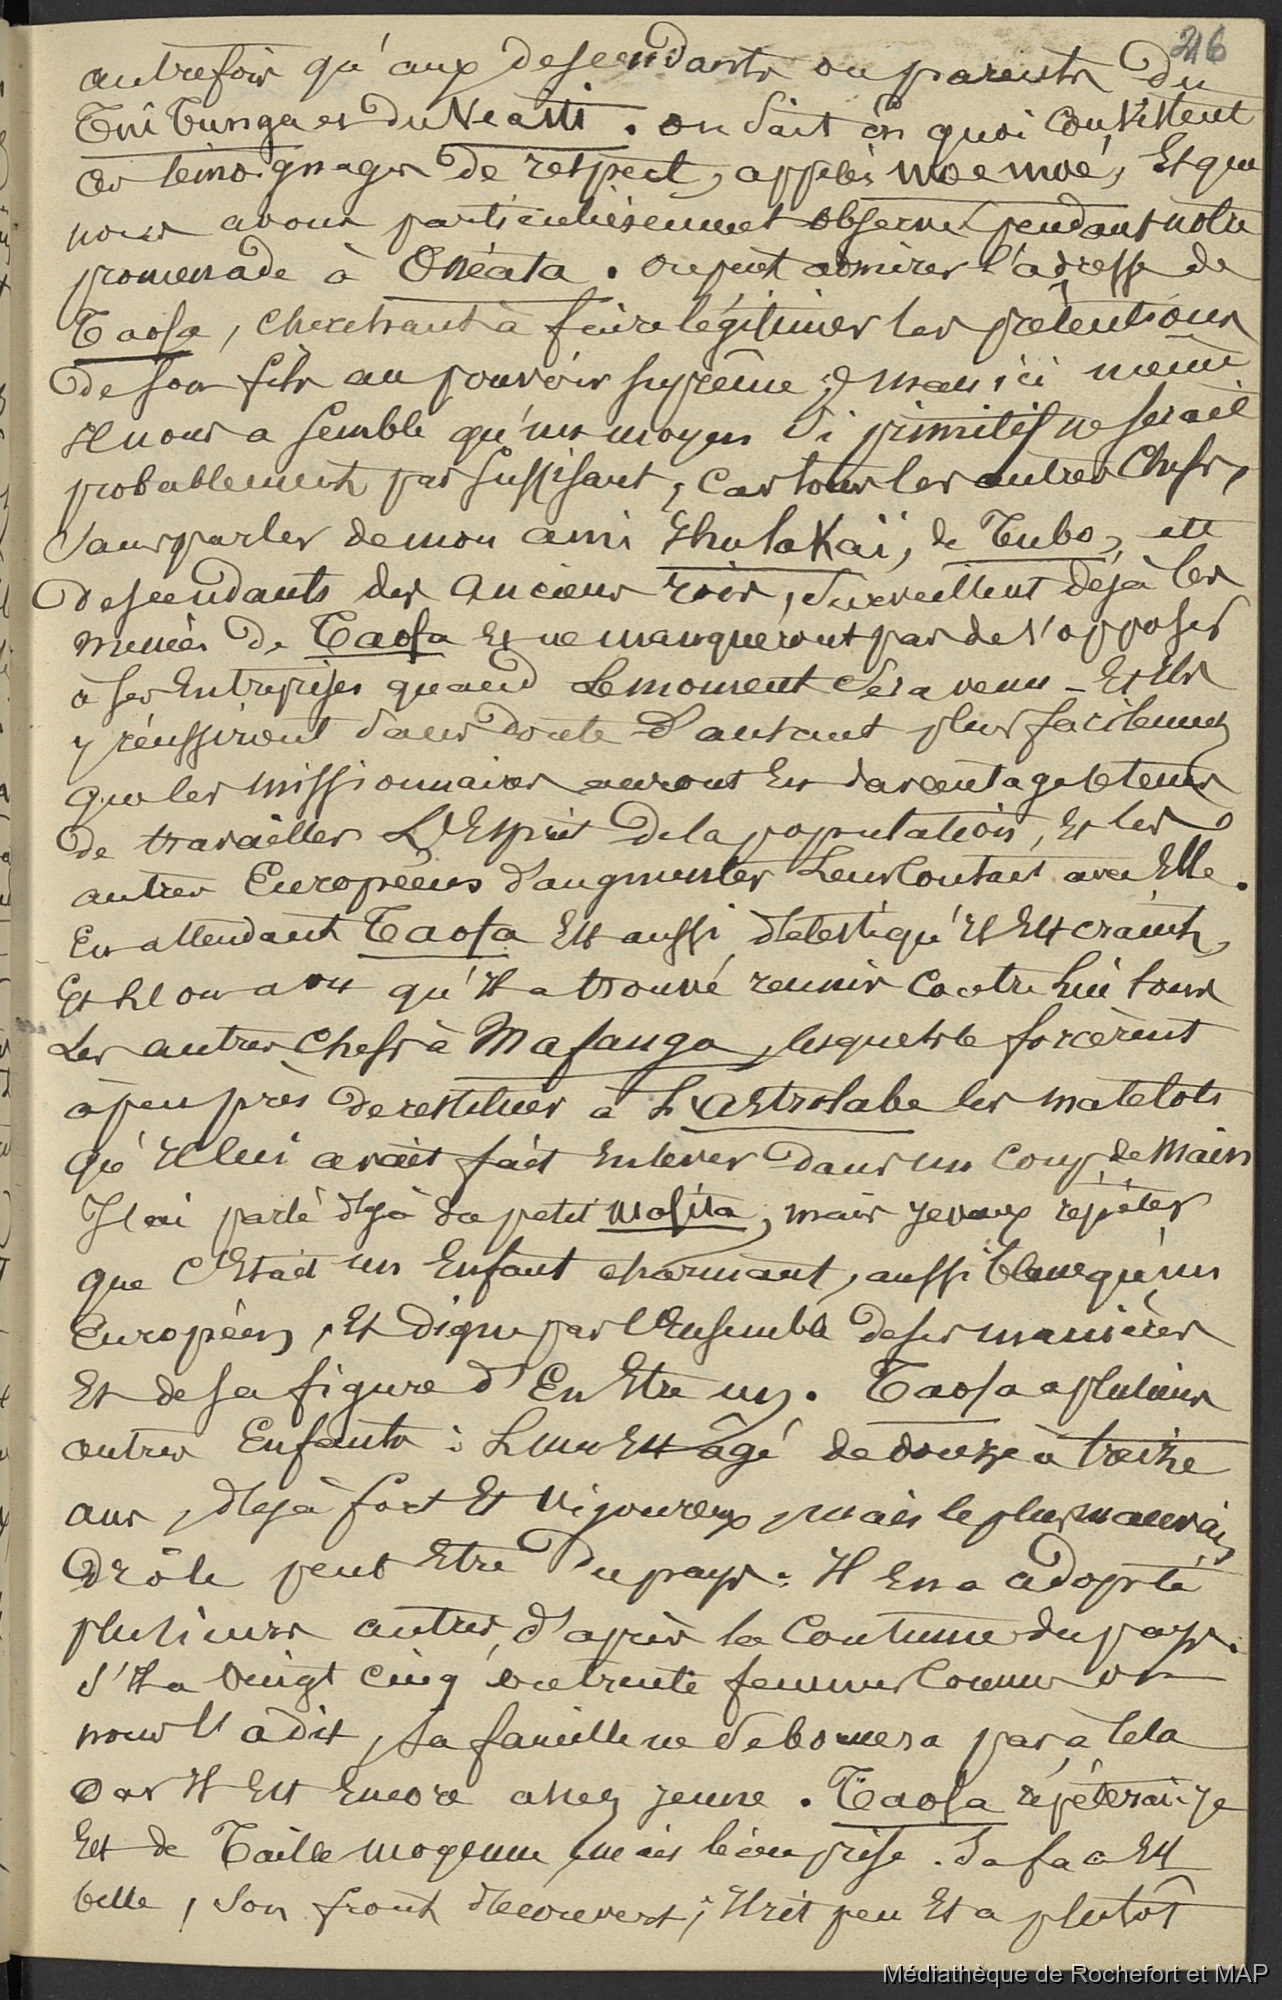 216
autrefois qu'aux descendants ou parents du
Tüi Tunga et du Veaïti. on sait en quoi consistent
ces témoignages de respect, appelés moe moé, Et que
nous avons particulièrement observés pendant notre
promenade à Onéata. on peut admirer l'adresse de
Taofa, cherchant à faire légitimer les prétentions
de son fils au pouvoir suprême; mais ici même
Il nous a semblé qu'un moyen si primitif ne serait
probablement pas suffisant, car tous les autres Chefs,
sans parler de mon ami Ehulakaï, de Tubo, ett
descendants des anciens rois, surveillent déjà les
menées de Taofa Et ne manqueront pas de s'opposer
à ses Entreprises quand Le moment sera venu - Et Ils
y réussiront sans doute d'autant plus facilement
que les missionnaires auront Eu davantage le tems
de travailler L'Esprit de la population, Et les
autres Européens d'augmenter Leur Contact avec Elle.
En attendant Taofa Est aussi détesté qu'Il Est craint,
Et L'on a vu qu'Il a trouvé réunis contre Lui tous
Les autres Chefs à Mafanga, lesquels le forcèrent
à peu près de restituer à L'Astrolabe les matelots
qu'Il lui avait fait Enlever dans un coup de Main
J'ai parlé déjà du petit Mofita, mais je veux répéter
que C'Etait un Enfant charmant, aussi blanc qu'un
Européen, Et digne par l'Ensemble de ses manières
Et de sa figure d'En Etre un. Taofa a plusieurs
autres Enfants : L'un Est âgé de douze à treize
ans, déjà fort Et vigoureux, mais le plus mauvais
Drôle peut Etre du pays. Il En a adopté
plusieurs autres, d'après la Coutume du pays.
S'Il a vingt cinq ou trente femmes Comme on
nous l'a dit, Sa famille ne se bornera pas à cela
Car Il Est Encore assez jeune. Taofa répéterai-je
Est de Taille moyenne, mais bien prise. Sa face Est
belle, Son front découvert; Il rit peu Et a plutôt
Médiathèque de Rochefort et MAP